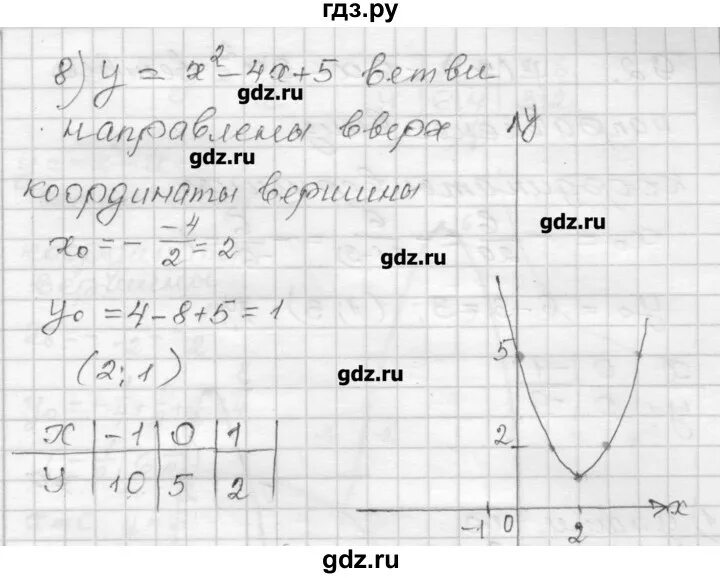 гдз.ру
8) y = x² - 4x + 5 ветви
gdz.ru
направлены вверх
y
gdz.ru
координаты вершины
gdz.ru
x₀ = - -4/2 = 2
gdz.ru
y₀ = 4 - 8 + 5 = 1
(2; 1)
gdz.ru
5
x | -1 | 0 | 1
2
y | 10 | 5 | 2
-1 0 2 x
gdz.ru
gdz.ru